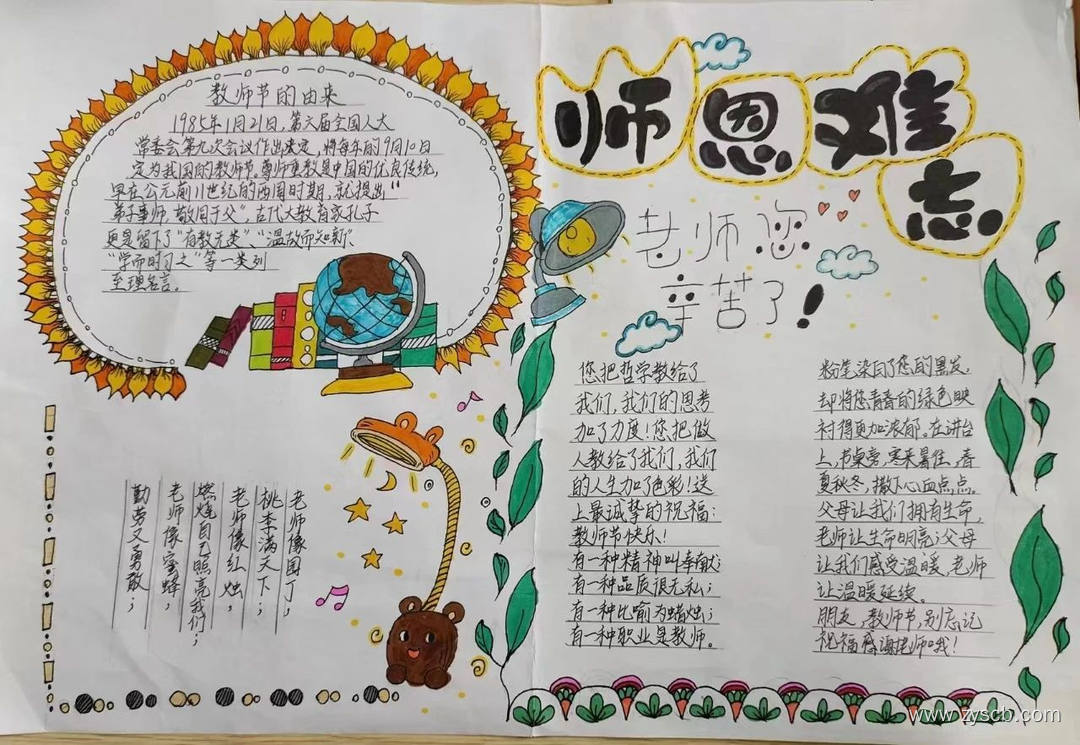 教师节的由来
1985年1月21日,第六届全国人大
常委会第九次会议作出决定,将每年的9月10日
定为我国的教师节。尊师重教是中国的优良传统,
早在公元前11世纪的西周时期,就提出"
弟子事师,敬同于父",古代大教育家孔子
更是留下了"有教无类"、"温故而知新"、
"学而时习之"等一类列
至理名言。
师恩难
忘
老师您
辛苦了!
您把哲学教给了
我们,我们的思考
加了力度!您把做
人教给了我们,我们
的人生加了色彩!送
上最诚挚的祝福:
教师节快乐!
有一种精神叫奉献;
有一种品质很无私;
有一种比喻为蜡烛;
有一种职业是教师。
粉笔染白了您的黑发,
却将您青春的绿色映
衬得更加浓郁。在讲台
上,书桌旁,寒来暑往,春
夏秋冬,撒下心血点点。
父母让我们拥有生命,
老师让生命明亮;父母
让我们感受温暖,老师
让温暖延续。
朋友,教师节,别忘记
祝福感谢老师哦!
老师像园丁,
桃李满天下;
老师像红烛,
燃烧自己照亮我们;
老师像蜜蜂,
勤劳又勇敢;
www.zyscb.com